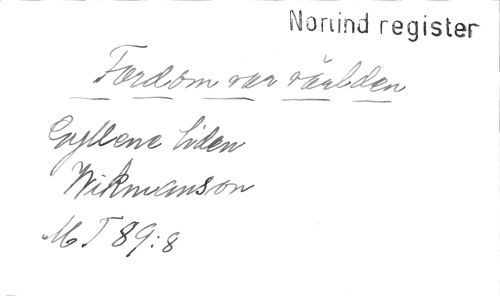 Norlind register
Fordom var världen
Gyllene tiden
Wikmanson
MT 89:8